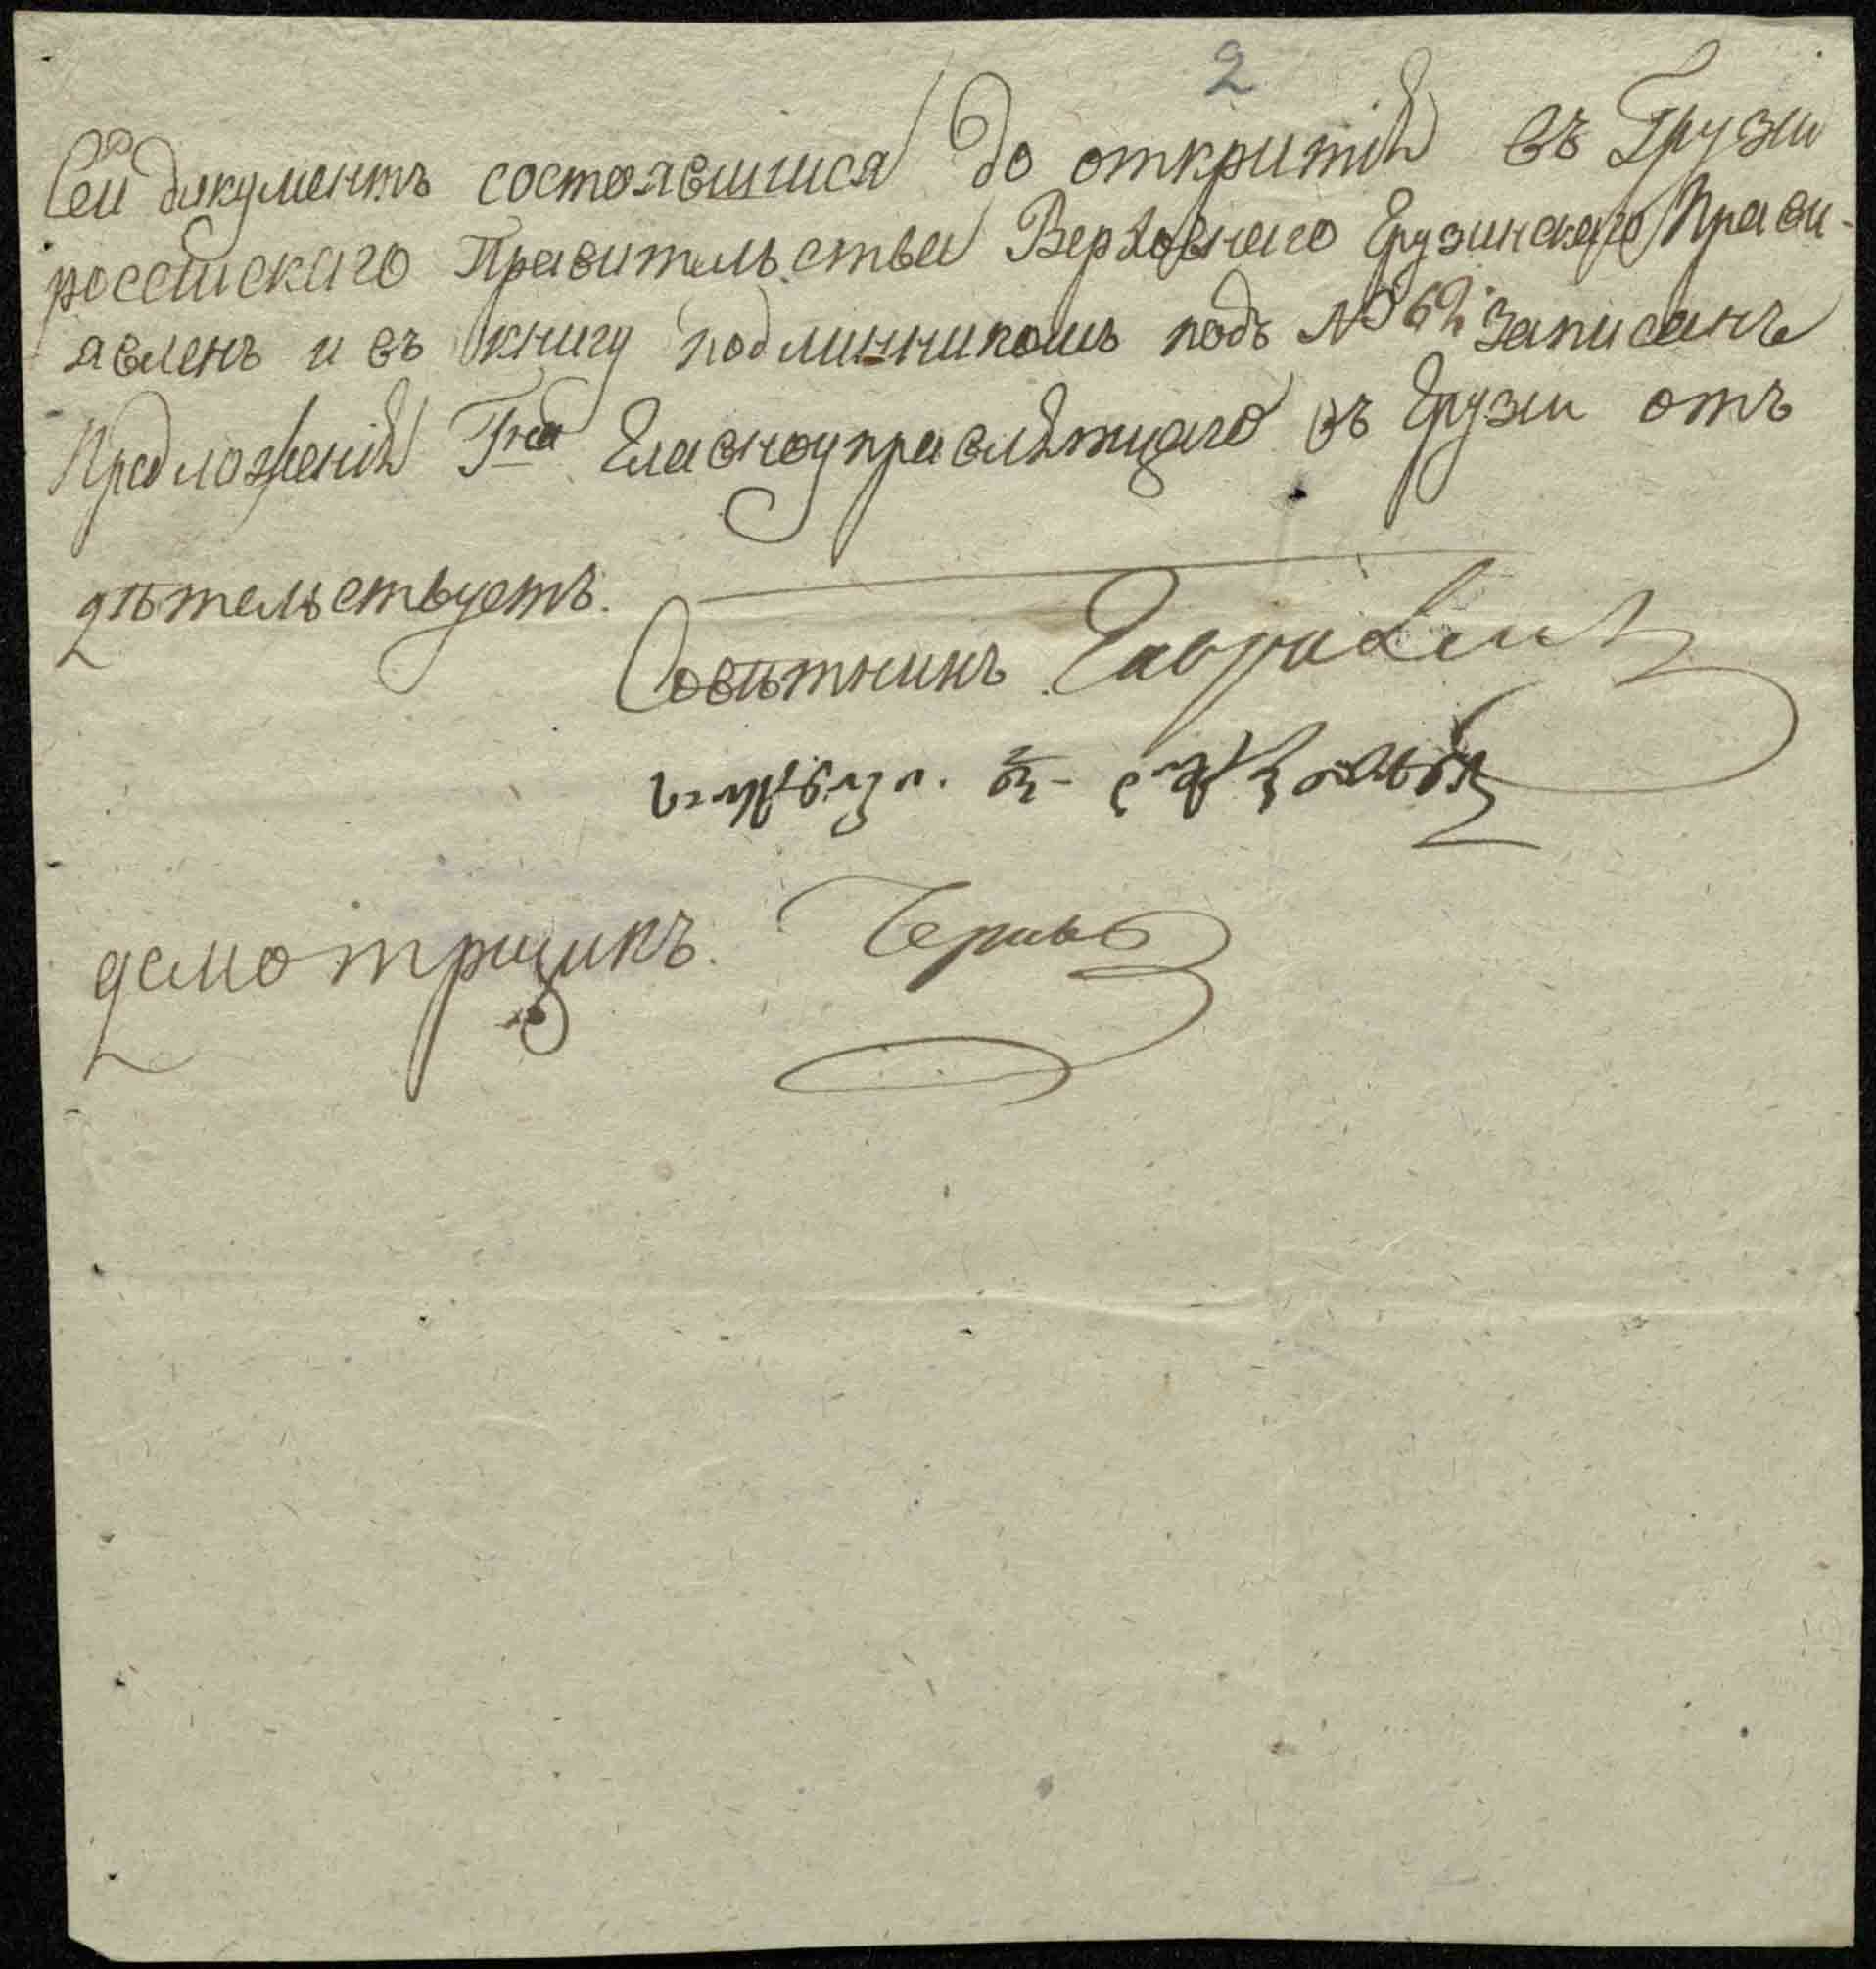 2
Сеи дакументъ состоявшиися до откритіѣ въ Грузіи
россіискаго Правительства Верховнаго Грузинскаго Прави-
явленъ и въ книгу подлинникомъ подъ № 62 записанъ
Предложеніѣ Гна Главноуправлѣющаго въ Грузіи отъ
дѣтельствуетъ.
Совѣтникъ
демотрщикъ.